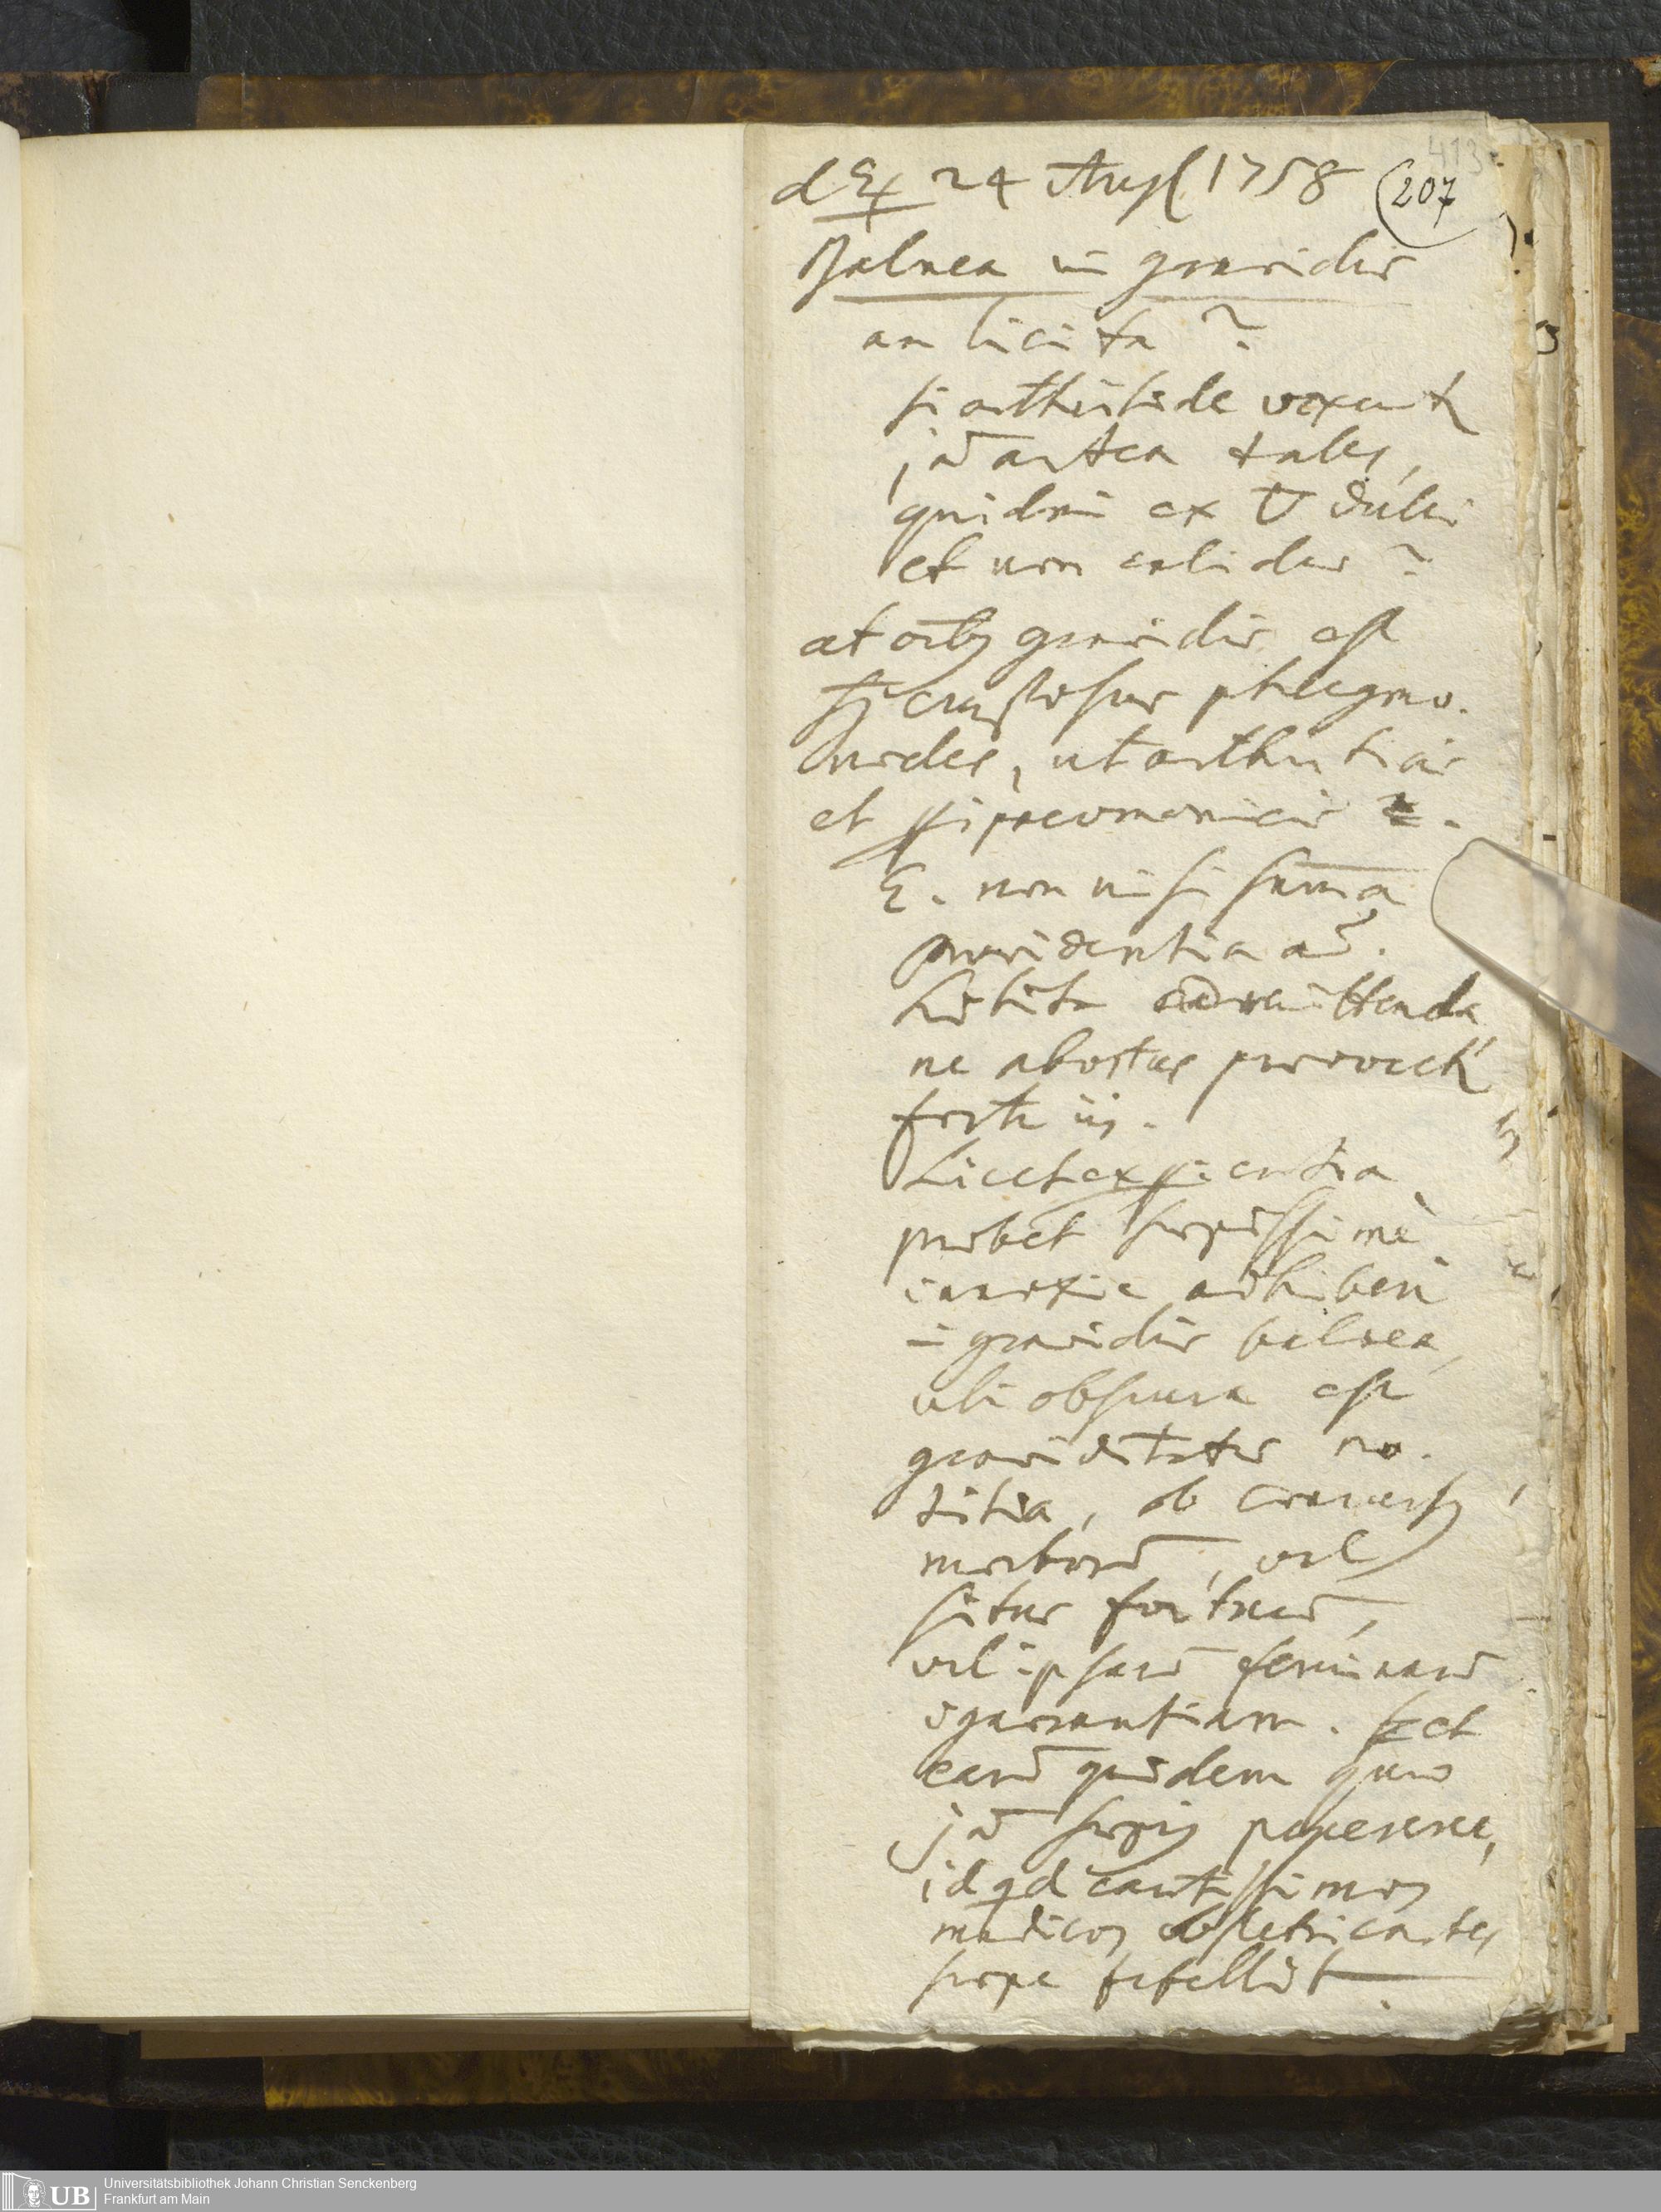 413
d ♃ 24 Aug 1758 (207
Balnea in gravidis
an licita?
si arthritide vexent
jā antea tales,
quidni ex ▽ dulci
et non calidas?
at oīb9 gravidis est
crustosus phlegmo.
nodes, ut arthriticis
et pneumonicis
E. non nisi sum̄a
providentia
admittenda
ne abortus provocet
forte iis.
Licet experientia
probet sepissime
innoxie adhiberi
in gravidis balnea,
ubi obscura est
graviditatis no.
titia, ob
morborū, vel
situs foetuū,
vel ipsarū feminarū
ignorantiam. et
earū quidem quae
jā sepius peperere,
id qd cautissimos
medicos obstetricantes
sepe fefellit.
Universitätsbibliothek Johann Christian Senckenberg
Frankfurt am Main
UB